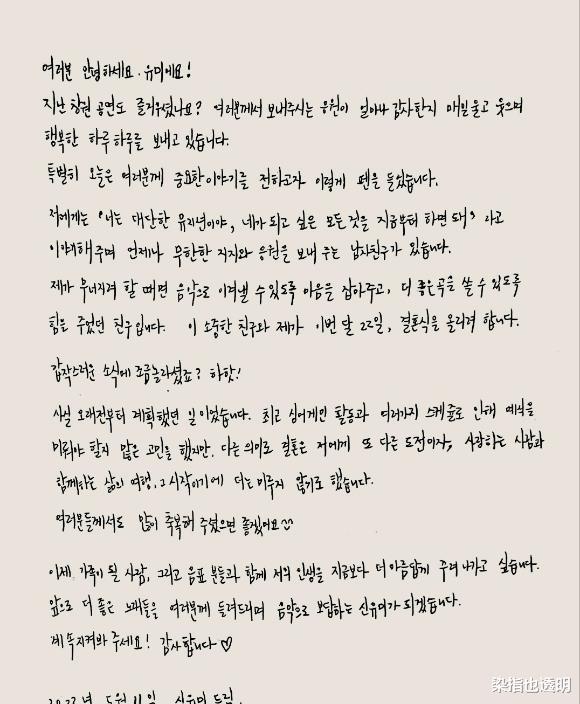 여러분 안녕하세요. 유미에요!
지난 창원 공연도 즐거우셨나요? 여러분께서 보내주시는 응원이 얼마나 감사한지 매일 울고 웃으며
행복한 하루하루를 보내고 있습니다.
특별히 오늘은 여러분께 중요한 이야기를 전하고자 이렇게 펜을 들었습니다.
저에게는 "너는 대단한 뮤지션이야, 네가 되고 싶은 모든 것을 지금부터 하면 돼" 라고
이야기해 주며 언제나 무한한 지지와 응원을 보내 주는 남자친구가 있습니다.
제가 무너지려 할 때면 음악으로 이겨낼 수 있도록 마음을 잡아주고, 더 좋은 곡을 쓸 수 있도록
힘을 주었던 친구입니다. 이 소중한 친구와 제가 이번 달 22일, 결혼식을 올리려 합니다.
갑작스러운 소식에 조금 놀라셨죠? 하핫!
사실 오래전부터 계획했던 일이었습니다. 최근 싱어게인 활동과 여러가지 스케줄로 인해 예식을
미뤄야 할지 많은 고민을 했지만, 다른 의미로 결혼은 저에게 또 다른 도전이자, 사랑하는 사람과
함께하는 삶의 여행, 그 시작이기에 더는 미루지 않기로 했습니다.
여러분들께서도 많이 축복해 주셨으면 좋겠어요
이제 가족이 될 사람, 그리고 음표 분들과 함께 저의 인생을 지금보다 더 아름답게 꾸려 나가고 싶습니다.
앞으로 더 좋은 노래들을 여러분께 들려드리며 음악으로 보답하는 신유미가 되겠습니다.
계속 지켜봐 주세요! 감사합니다♡
2022년 5월 11일 신유미 드림.
染指也透明